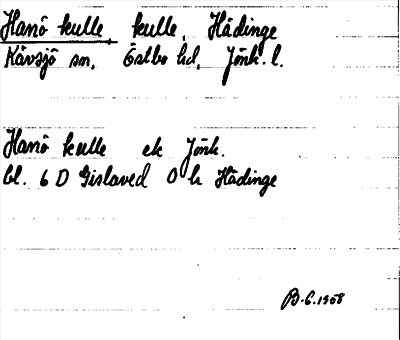 Hanö kulle, kulle, Hådinge
Kävsjö sn. Östbo hd. Jönk. l.
Hanö kulle ek Jönk.
bl. 6 D Gislaved 0 h Hådinge
B.6.1958